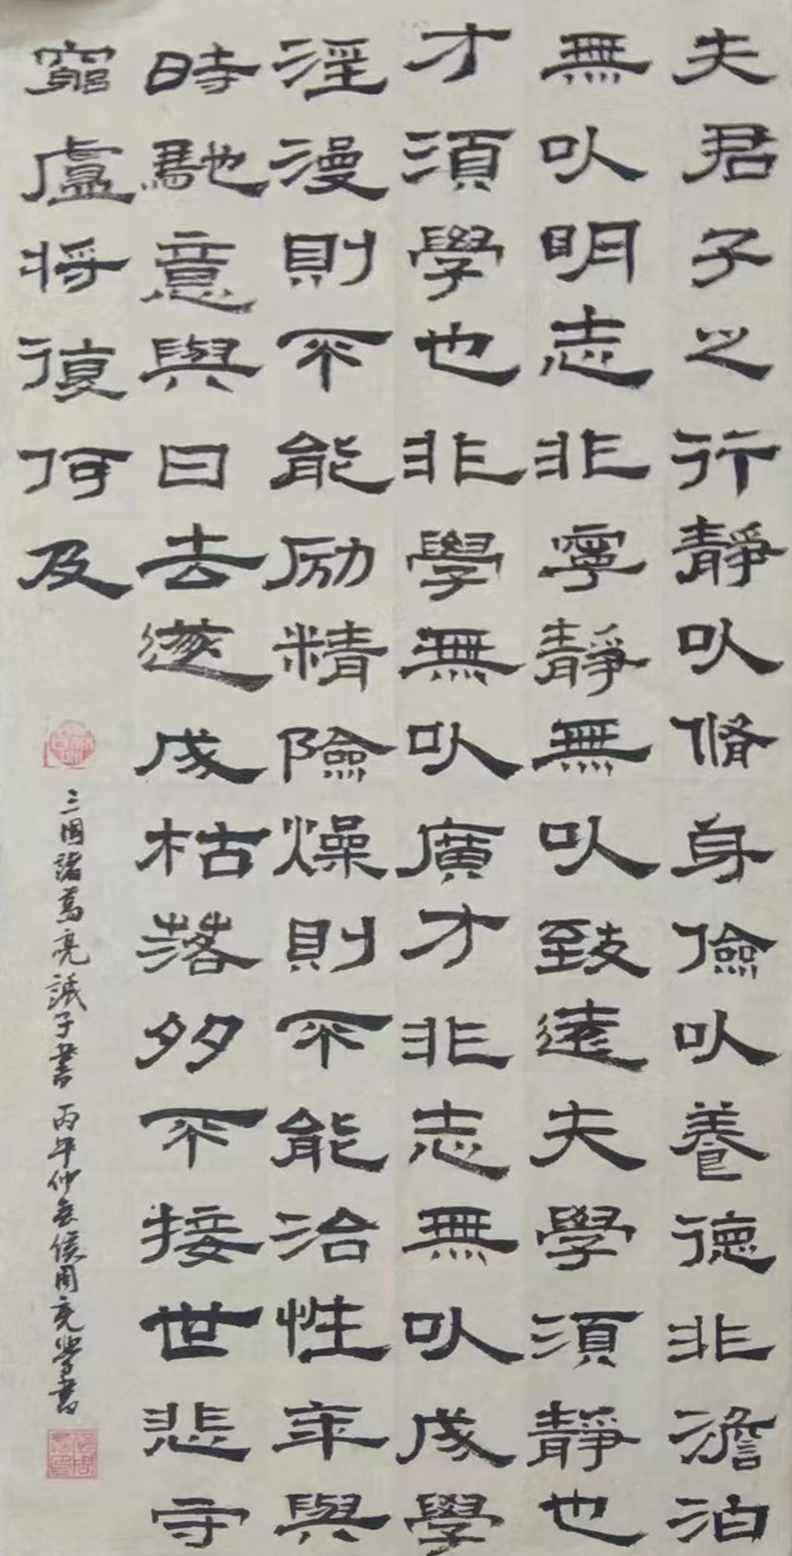 夫君子之行靜以脩身儉以養德非澹泊
無以明志非寧靜無以致遠夫學須靜也
才須學也非學無以廣才非志無以成學
淫漫則不能励精險燥則不能治性年與
時馳意與日去遂成枯落多不接世悲守
窮盧将復何及
三國諸葛亮誡子書 丙午仲春 學書